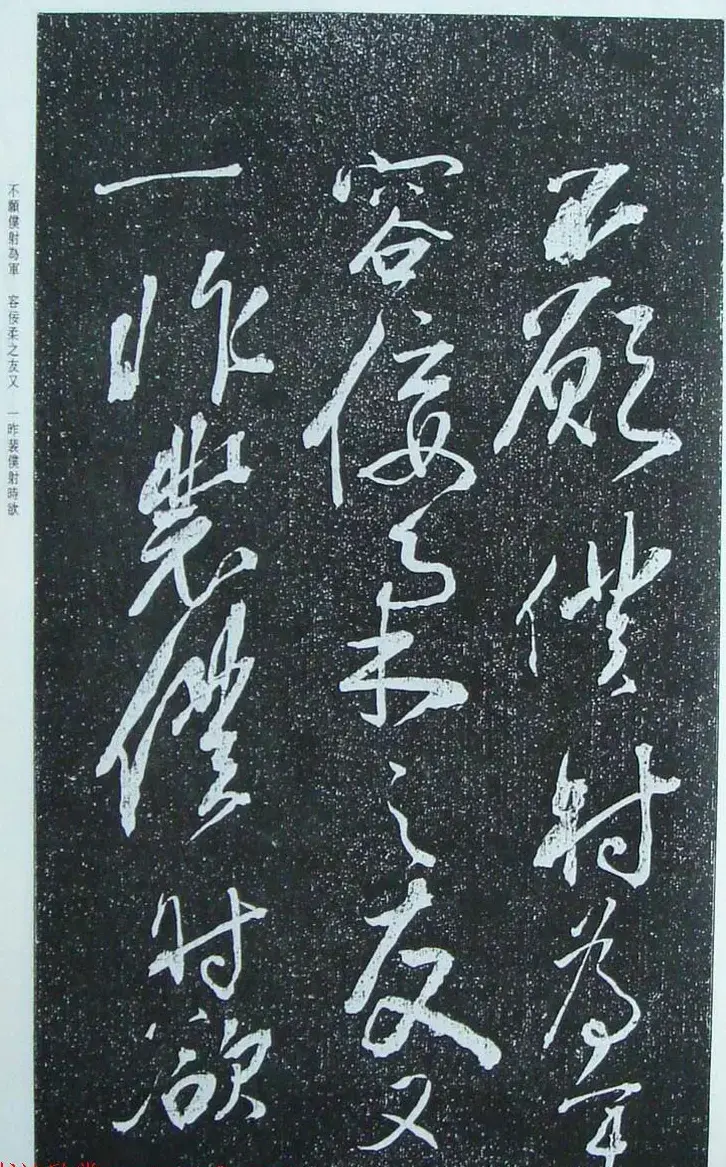 不願僕射為軍
容佞柔之友又
一昨裴僕射欲
不願僕射為軍 容佞柔之友又 一昨裴僕射時欲